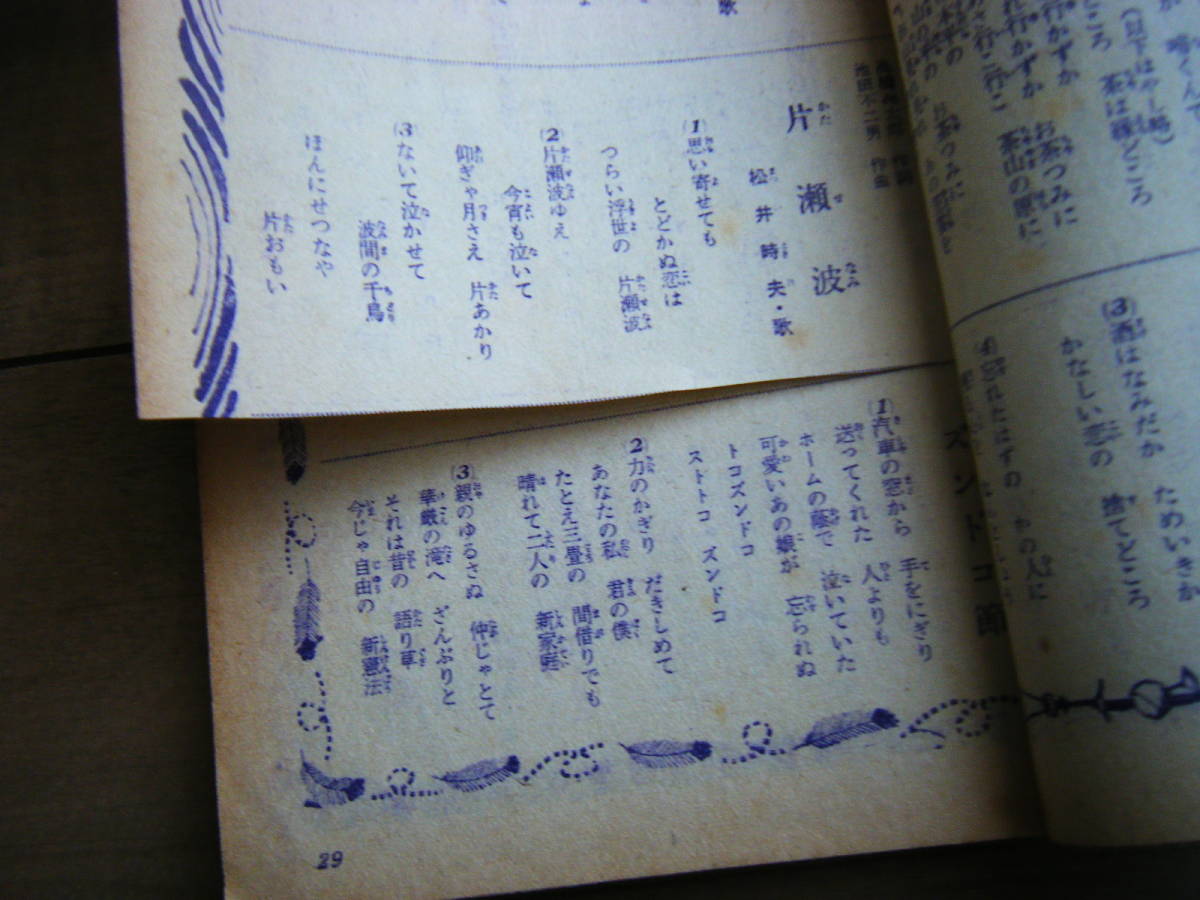 歌
片瀬波
松井時夫・歌
池田不二男 作曲
(1)思い寄せても
とどかぬ恋は
つらい浮世の 片瀬波
(2)片瀬波ゆえ
今宵も泣いて
仰ぎゃ月さえ 片あかり
(3)ないて泣かせて
波間の千鳥
ほんにせつなや
片おもい
茶は縁どころ
お茶つみに
茶山の原に
(3)酒はなみだか ためいきか
かなしい恋の 捨てどころ
ズンドコ節
(1)汽車の窓から 手をにぎり
送ってくれた 人よりも
ホームの蔭で 泣いていた
可愛いあの娘が 忘られぬ
トコズンドコ
ストトコ ズンドコ
(2)力のかぎり だきしめて
あなたの私 君の僕
たとえ三畳の 間借りでも
晴れて二人の 新家庭
(3)親のゆるさぬ 仲じゃとて
華厳の滝へ ざんぶりと
それは昔の 語り草
今じゃ自由の 新憲法
29